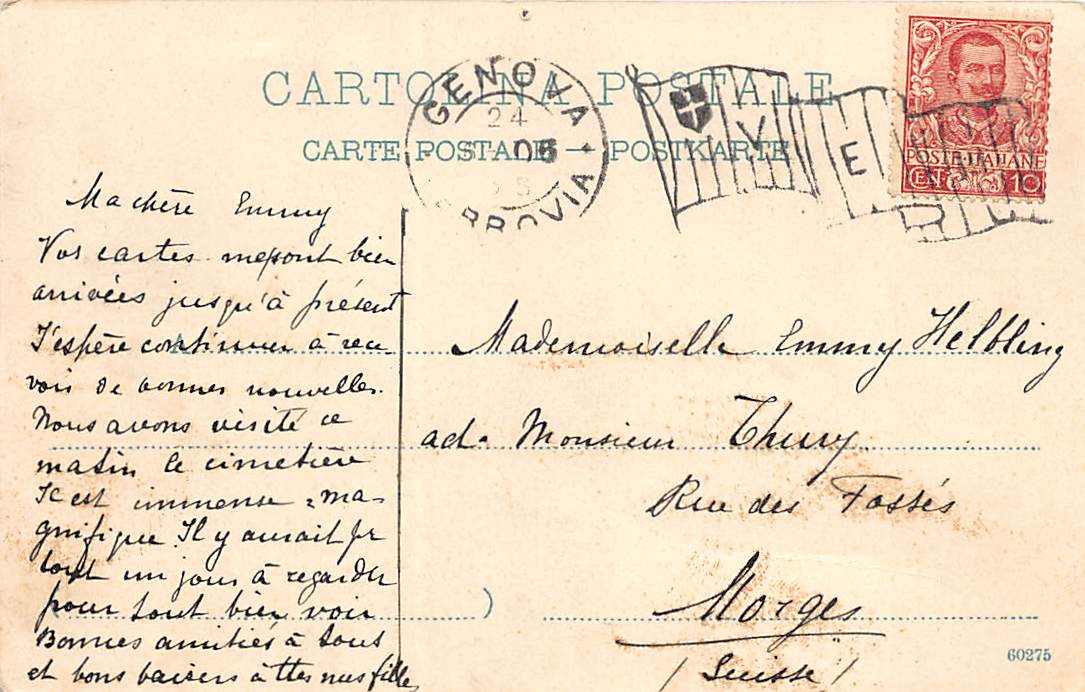 CARTOLINA POSTALE
CARTE POSTALE — POSTKARTE
GENOVA
24
5 05
FERROVIA
V E
POSTE ITALIANE
CENT 10
Ma chère Emmy
Vos cartes me sont bien
arrivées jusqu'à présent
J'espère continuer à rece
voir de bonnes nouvelles.
Nous avons visité ce
matin le cimetière
Il est immense, ma-
gnifique. Il y aurait pr
tout un jour à regarder
pour tout bien voir
Bonnes amitiés à tous
et bons baisers à ttes mes filles
Mademoiselle Emmy Helbling
ad. Monsieur Thury
Rue des Fossés
Morges
(Suisse)
60275